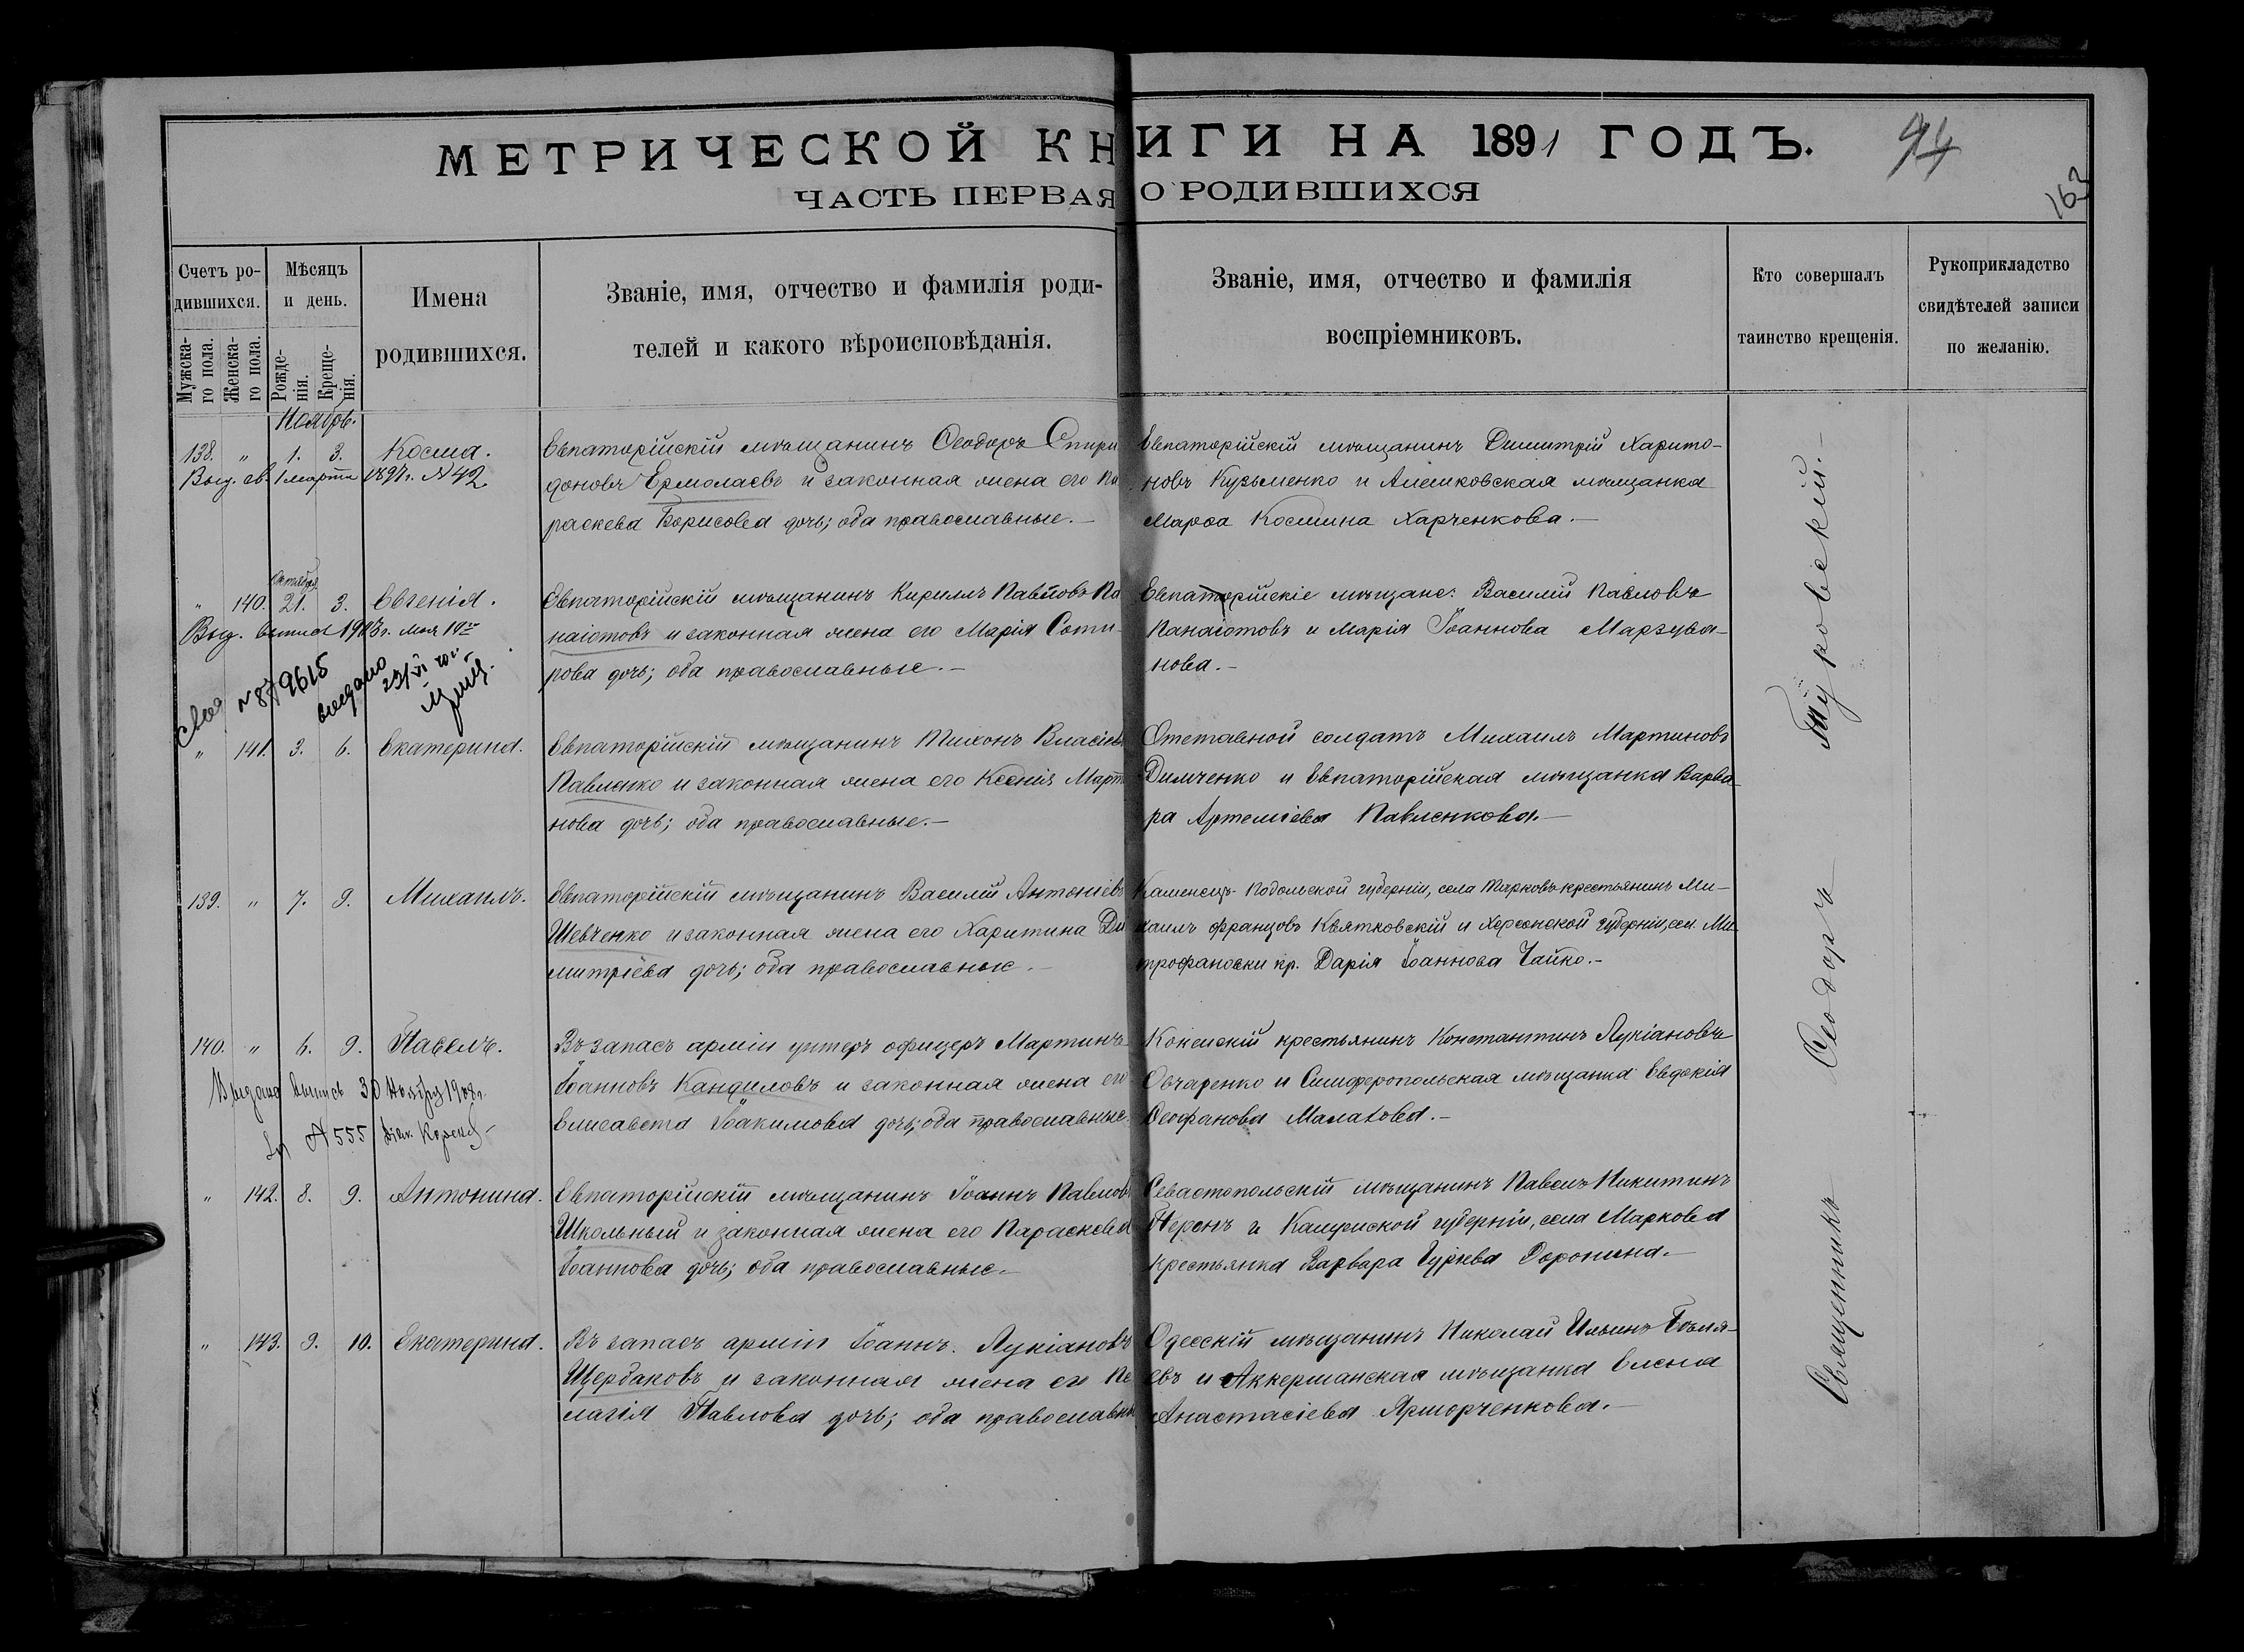 МЕТРИЧЕСКОЙ КНИГИ НА 1891 ГОДЪ.
94
163
ЧАСТЬ ПЕРВАЯ О РОДИВШИХСЯ
Счетъ ро-
дившихся.
Мужска-
го пола.
Женска-
го пола.
Мѣсяцъ
и день.
Рожде-
нія.
Креще-
нія.
Имена
родившихся.
Званіе, имя, отчество и фамилія роди-
телей и какого вѣроисповѣданія.
Званіе, имя, отчество и фамилія
воспріемниковъ.
Кто совершалъ
таинство крещенія.
Рукоприкладство
свидѣтелей записи
по желанію.
Ноябрь.
138. " 1. 3. Косма.
Выд. св. 1 марта 1897 г. № 42.
Евпаторійскій мѣщанинъ Ѳеодоръ Спири
доновъ Ермолаевъ и законная жена его Па
раскева Борисова дочь; оба православные.—
Евпаторійскій мѣщанинъ Димитрій Харито-
новъ Кузьменко и Алешковская мѣщанка
Марѳа Космина Харченкова.—
Октября
" 140. 21. 3. Евгенія.
Выд. выпись 1903 г. мая 19го
№ 879615
выдано
Евпаторійскій мѣщанинъ Кириллъ Павловъ Па
наіотовъ и законная жена его Марія Соти-
рова дочь; оба православные.—
Евпаторійскіе мѣщане: Василій Павловъ
Панаіотовъ и Марія Іоаннова Марзува-
нова.—
" 141. 3. 6. Екатерина.
Евпаторійскій мѣщанинъ Тихонъ Власіевъ
Павленко и законная жена его Ксенія Март
нова дочь; оба православные.—
Отставной солдатъ Михаилъ Мартиновъ
Димченко и Евпаторійская мѣщанка Варва-
ра Артеміева Павленкова.—
139. " 7. 9. Михаилъ.
Евпаторійскій мѣщанинъ Василій Антоніевъ
Шевченко и законная жена его Харитина Ди
митріева дочь; оба православные.—
Каменецъ-Подольской губерніи, села Марковъ крестьянинъ Ми-
хаилъ Францовъ Квятковскій и Херсонской губерніи, сел. Ми
трофановки кр. Дарія Іоаннова Чайко.—
140. " 6. 9. Павелъ.
Выдана выпись 30 Ноября 1908 г.
№ 555
Въ запасѣ арміи унтеръ офицеръ Мартинъ
Іоанновъ Кандиловъ и законная жена его
Елисавета Іоакимова дочь; оба православные.
Кокенскій крестьянинъ Константинъ Лукіановъ
Овчаренко и Симферопольская мѣщанка Евдокія
Ѳеофанова Малахова.—
" 142. 8. 9. Антонина.
Евпаторійскій мѣщанинъ Іоаннъ Павловъ
Школьный и законная жена его Параскева
Іоаннова дочь; оба православные.—
Севастопольскій мѣщанинъ Павелъ Никитинъ
Неронъ и Калужской губерніи, села Маркова
крестьянка Варвара Гурьева Доронина.—
" 143. 9. 10. Екатерина.
Въ запасѣ арміи Іоаннъ Лукіановъ
Щербаковъ и законная жена его Пе
лагія Павлова дочь; оба православны
Одесскій мѣщанинъ Николай Ильинъ Бѣля-
евъ и Аккерманская мѣщанка Елена
Анастасіева Ярморченкова.—
Священникъ Ѳеодоръ Туровскій.—